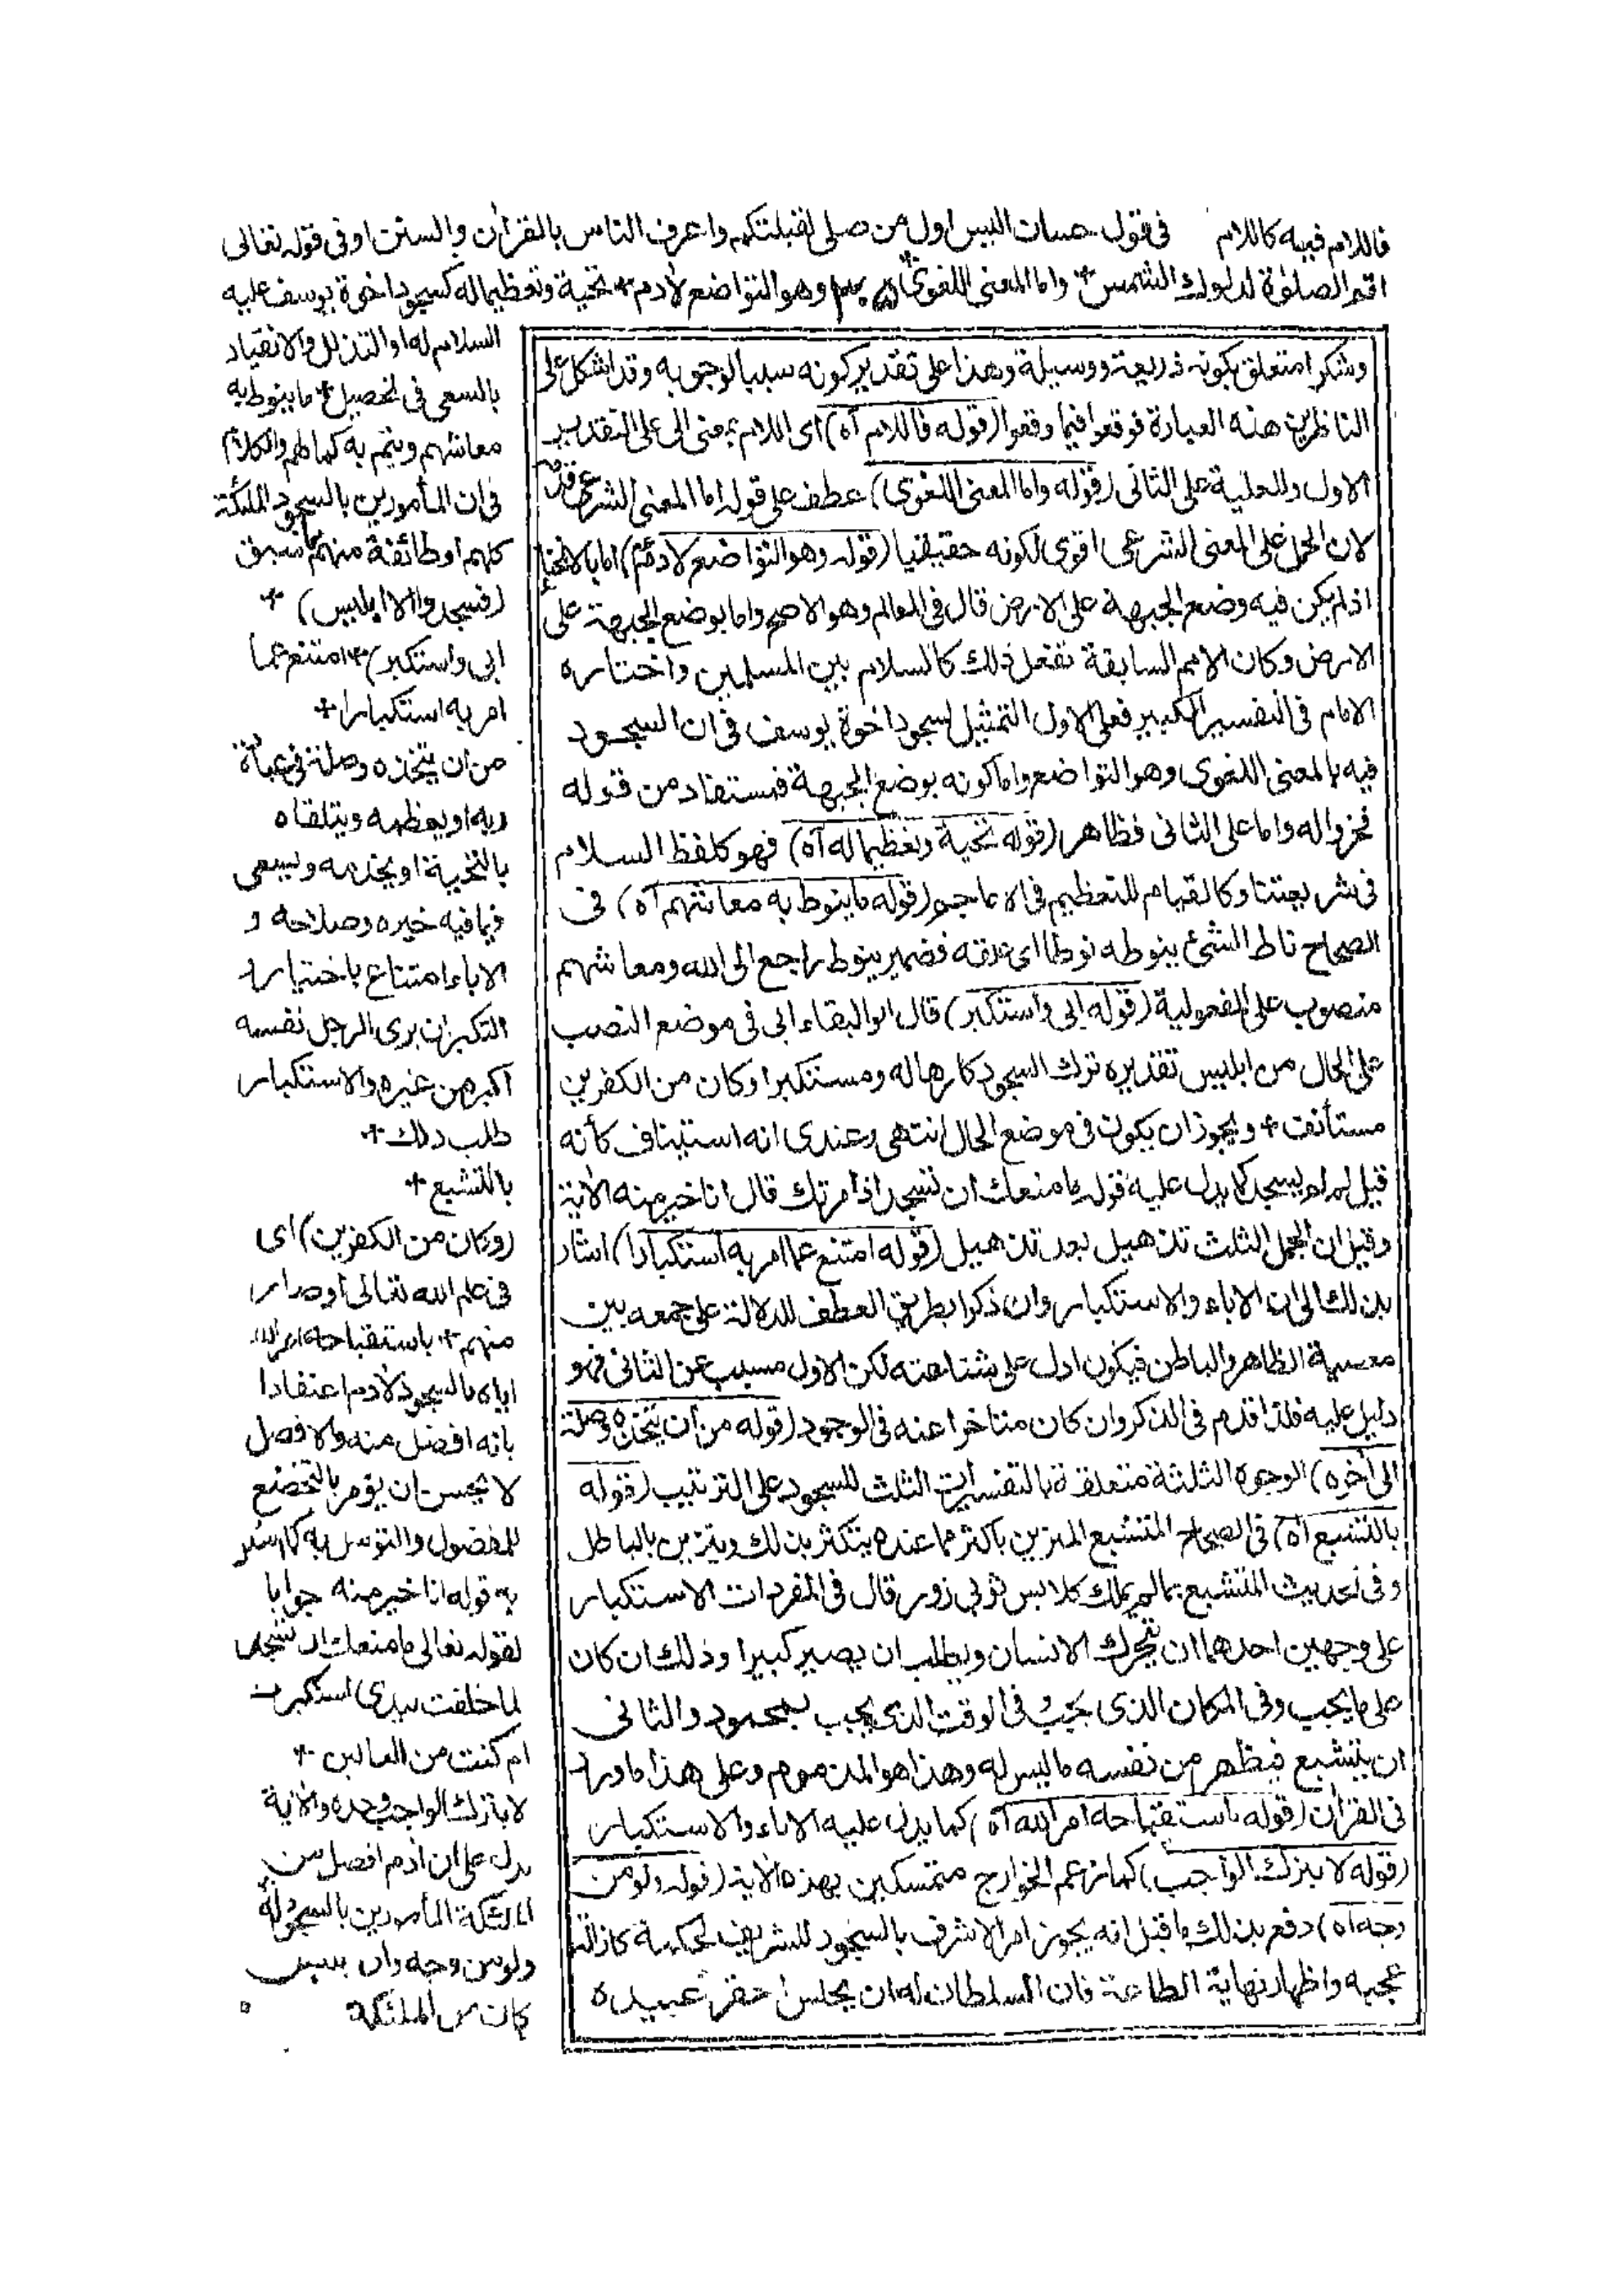 فاللام فيه كاللام في قول حسان اليس اول من صلى لقبلتكم واعرف الناس بالقرأن والسنن او فى قوله تعالى
اقم الصلوٰة لدلوك الشمس + واما المعنى اللغوى وهو التواضع لأدم + تحية وتعظيما له كسجود اخوة يوسف عليه
السلام له او التذلل والانقياد
بالسعى فى تحصيل + ما ينوط به
معاشهم ويتم به كمالهم والكلام
فى ان المأمورين بالسجود الملئكة
كلهم او طائفة منهم ما سبق
(فسجدوا الا ابليس) +
ابى واستكبر) + امتنع عما
امر به استكبارا +
من ان يتخذه وصلة فى عبادة
ربه او يعظمه ويتلقاه
بالتحية او يخدمه ويسعى
فيما فيه خيره وصلاحه و
الاباء امتناع باختيار و
التكبر ان يرى الرجل نفسه
اكبر من غيره والاستكبار
طلب ذلك +
بالتشبع +
(وكان من الكفرين) اى
فى علم الله تعالى او صار
منهم + باستقباحه امر الله
اياه بالسجود لأدم اعتقادا
بانه افضل منه والافضل
لا يحسن ان يؤمر بالتخضع
للمفضول والتوسل به كما اشعر
به قوله انا خير منه جوابا
لقوله تعالى ما منعك ان تسجد
لما خلقت بيدى استكبرت
ام كنت من العالين +
لا بترك الواجب وحده والأية
يدل على ان أدم افضل من
الملئكة المأمورين بالسجود له
ولو من وجه وان ابليس
كان من الملئكة
وشكرا متعلق بكونه ذريعة ووسيلة وهذا على تقدير كونه سببا لوجوبه وقد اشكل على
الناظرين هذه العبارة فوقعوا فيما وقعوا (قوله فاللام آه) اى اللام بمعنى الى على التقدير
الاول وللعلية على الثانى (قوله واما المعنى اللغوى) عطف على قوله اما المعنى الشرعى قدم
لان الحمل على المعنى الشرعى اقوى لكونه حقيقيا (قوله وهو التواضع لأدم) اما بالانحناء
اذ لم يكن فيه وضع الجبهة على الارض قال فى المعالم وهو الاصح واما بوضع الجبهة على
الارض وكان الامم السابقة تفعل ذلك كالسلام بين المسلمين واختاره
الامام فى التفسير الكبير فعلى الاول التمثيل لسجود اخوة يوسف فى ان السجود
فيه بالمعنى اللغوى وهو التواضع واما كونه بوضع الجبهة فمستفاد من قوله
فخروا له واما على الثانى فظاهر (قوله تحية وتعظيما له آه) فهو كلفظ السلام
فى شريعتنا وكالقيام للتعظيم فى الاعاجم (قوله ما ينوط به معاشهم آه) فى
الصحاح ناط الشئ ينوطه نوطا اى علقه فضمير ينوط راجع الى الله ومعاشهم
منصوب على المفعولية (قوله ابى واستكبر) قال ابو البقاء ابى فى موضع النصب
على الحال من ابليس تقديره ترك السجود كارها له ومستكبرا وكان من الكفرين
مستأنف + ويجوز ان يكون فى موضع الحال انتهى وعندى انه استيناف كأنه
قيل لم لم يسجد كما يدل عليه قوله ما منعك ان تسجد اذ امرتك قال انا خير منه الأية
وقيل ان الجمل الثلث تذييل بعد تذييل (قوله امتنع عما امر به استكبارا) اشار
بذلك الى ان الاباء والاستكبار وان ذكرا بطريق العطف للدلالة على جمعه بين
معصية الظاهر والباطن فيكون ادل على شناعته لكن الاول مسبب عن الثانى فهو
دليل عليه فلذا قدم فى الذكر وان كان متاخرا عنه فى الوجود (قوله من ان يتخذه وصلة
الى أخره) الوجوه الثلثة متعلقة بالتفسيرات الثلث للسجود على الترتيب (قوله
بالتشبع آه) فى الصحاح المتشبع المتزين باكثر مما عنده يتكثر بذلك ويتزين بالباطل
وفى الحديث المتشبع بما لم يملك كلابس ثوبى زور قال فى المفردات الاستكبار
على وجهين احدهما ان يتحرك الانسان ويطلب ان يصير كبيرا وذلك ان كان
على ما يجب وفى المكان الذى يجب وفى الوقت الذى يجب فمحمود والثانى
ان يتشبع فيظهر من نفسه ما ليس له وهذا هو المذموم وعلى هذا ما ورد
فى القرأن (قوله باستقباحه امر الله آه) كما يدل عليه الاباء والاستكبار
(قوله لا بترك الواجب) كما زعم الخوارج متمسكين بهذه الأية (قوله ولو من
وجه آه) دفع بذلك ما قيل انه يجوز امر الاشرف بالسجود للشريف لحكمة كازالة
عجبه واظهار نهاية الطاعة فان السلطان له ان يجلس احقر عبيده